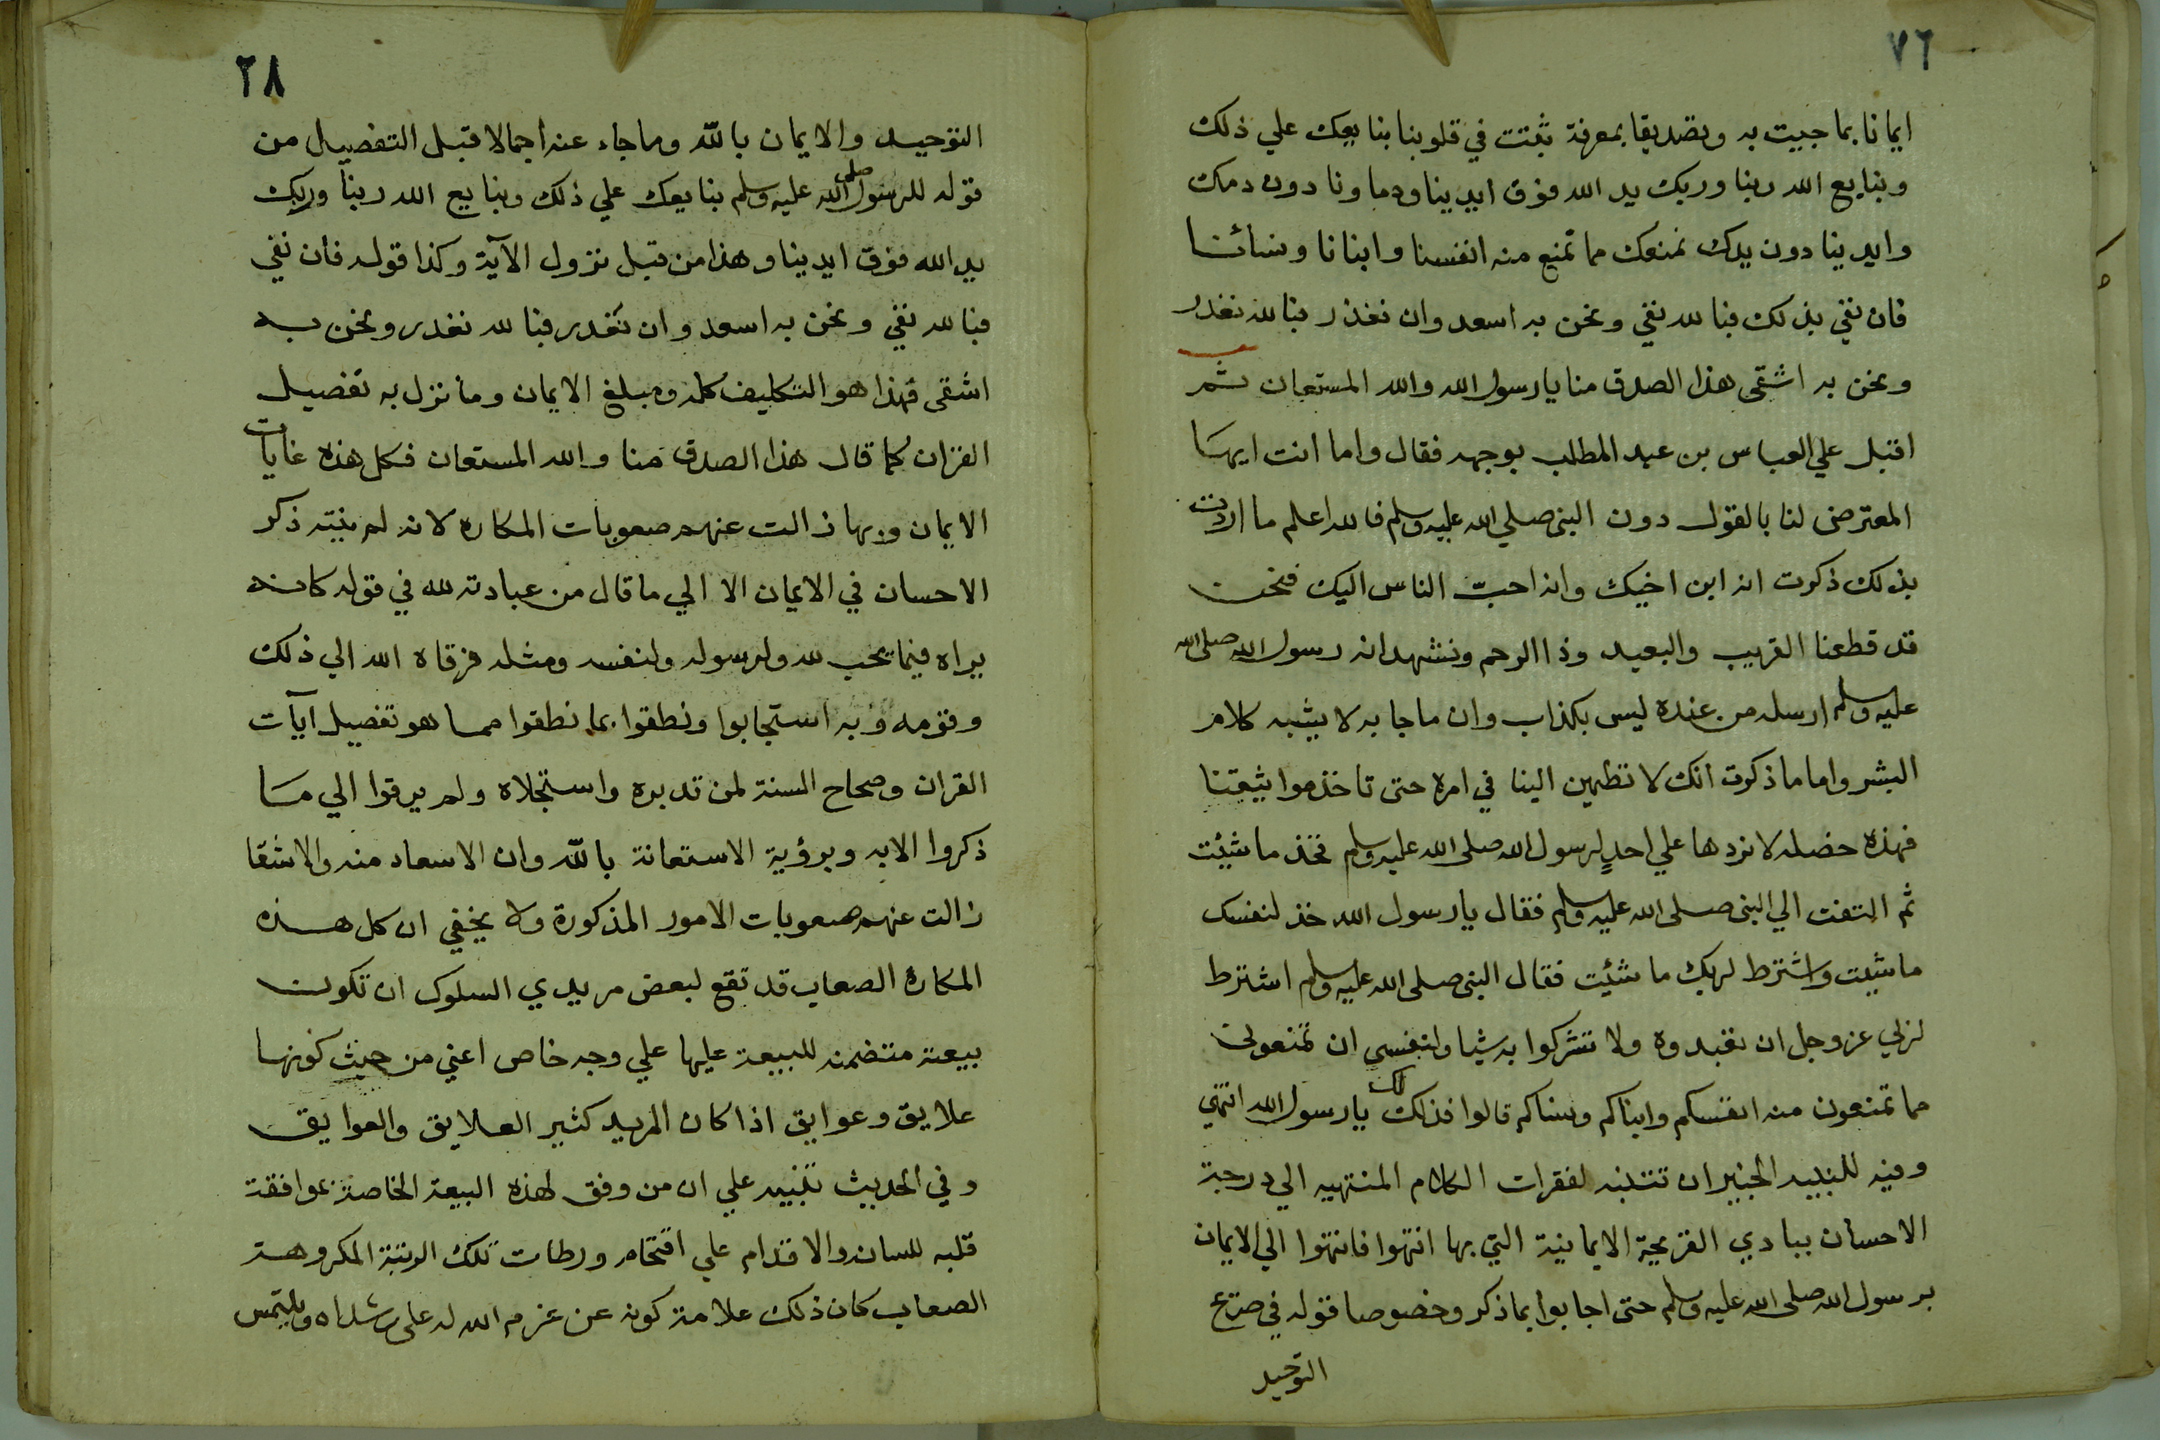 ٧٦
ايمانا بما جيت به وتصديقا بمعرفة ثبتت في قلوبنا بنايعك علي ذلك
وبنايع الله ربنا وربك يد الله فوق ايدينا ودماونا دون دمك
وايدينا دون يدك نمنعك مما تمنع منه انفسنا وابنانا ونسائنا
فان نفي بذلك فبالله نفي ونحن به اسعد وان نغذر فبالله نغدر
ونحن به اشقى هذا الصدق منا يا رسول الله والله المستعان ثمر
اقبل علي العباس بن عبد المطلب بوجهه فقال واما انت ايها
المعترض لنا بالقول دون النبي صلي الله عليه وسلم فالله اعلم ما اردت
بذلك ذكرت انه ابن اخيك وانه احبّ الناس اليك فنحن
قد قطعنا القريب والبعيد وذا الرحم ونشهد انه رسول الله صلى الله
عليه وسلم ارسله من عنده ليس بكذاب وان ما جا به لا يشبه كلام
البشر واما ما ذكرت انك لا تطمين الينا في امره حتى تاخذ مواثيقنا
فهذه خصله لا نردها علي احدٍ لرسول الله صلى الله عليه وسلم فخذ ما شئت
ثم التفت الي النبي صلى الله عليه وسلم فقال يا رسول الله خذ لنفسك
ما شيت واشترط لربك ما شئت فقال النبي صلى الله عليه وسلم اشترط
لربي عز وجل ان تعبدوه ولا تشركوا به شيا ولنفسي ان تمنعوني
مما تمنعون منه انفسكم وابناكم ونساكم قالوا فذلك لك يا رسول الله انتهي
وفيه للنبيه الخبير ان تتنبه لفقرات الكلام المنتهيه الي درجة
الاحسان ببادي القريحة الايمانية التي بها انتهوا فانتهوا الي الايمان
برسول الله صلى الله عليه وسلم حتى اجابوا بما ذكر وخصوصا قوله في صدع
التوحيد
٢٨
التوحيد والايمان بالله وما جاء عنه اجمالا قبل التفصيل من
قوله للرسول صلى الله عليه وسلم بنايعك علي ذلك وبنايع الله ربنا وربك
يد الله فوق ايدينا وهذا من قبل نزول الآية وكذا قوله فان نفي
فبالله نفي ونحن به اسعد وان نغدر فبالله نغدر ونحن به
اشقى فهذا هو التكليف كله ومبلغ الايمان وما نزل به تفصيل
القران كما قال هذا الصدق منا والله المستعان فكل هذه غايات
الايمان وبها زالت عنهم صعوبات المكاره لانه لم ينبّه ذكر
الاحسان في الايمان الا الي ما قال من عبادته لله في قوله كانه
يراه فيما يحب لله ولرسوله ولنفسه ومثله فرقاه الله الي ذلك
وقومه وبه استجابوا ونطقوا بما نطقوا مما هو تفصيل آيات
القران وصحاح السنة لمن تدبره واستجلاه ولم يرقوا الي مـا
ذكروا الا به وبرؤية الاستعانة بالله وان الاسعاد منه والاشقا
زالت عنهم صعوبات الامور المذكورة ولا يخفي ان كل هــذه
المكاره الصعاب قد تقع لبعض مريدي السلوك ان تكون
بيعته متضمنه للبيعة عليها علي وجه خاص اعني من حيث كونها
علايق وعوايق اذا كان المريد كثير العلايق والعوايق
وفي الحديث تنبيه علي ان من وفق لهذه البيعة الخاصة بموافقة
قلبه للسانه والاقدام علي اقتحام ورطات تلك الرتبة المكروهة
الصعاب كان ذلك علامة كونه عن عزم الله له على رشداه ويلتمس